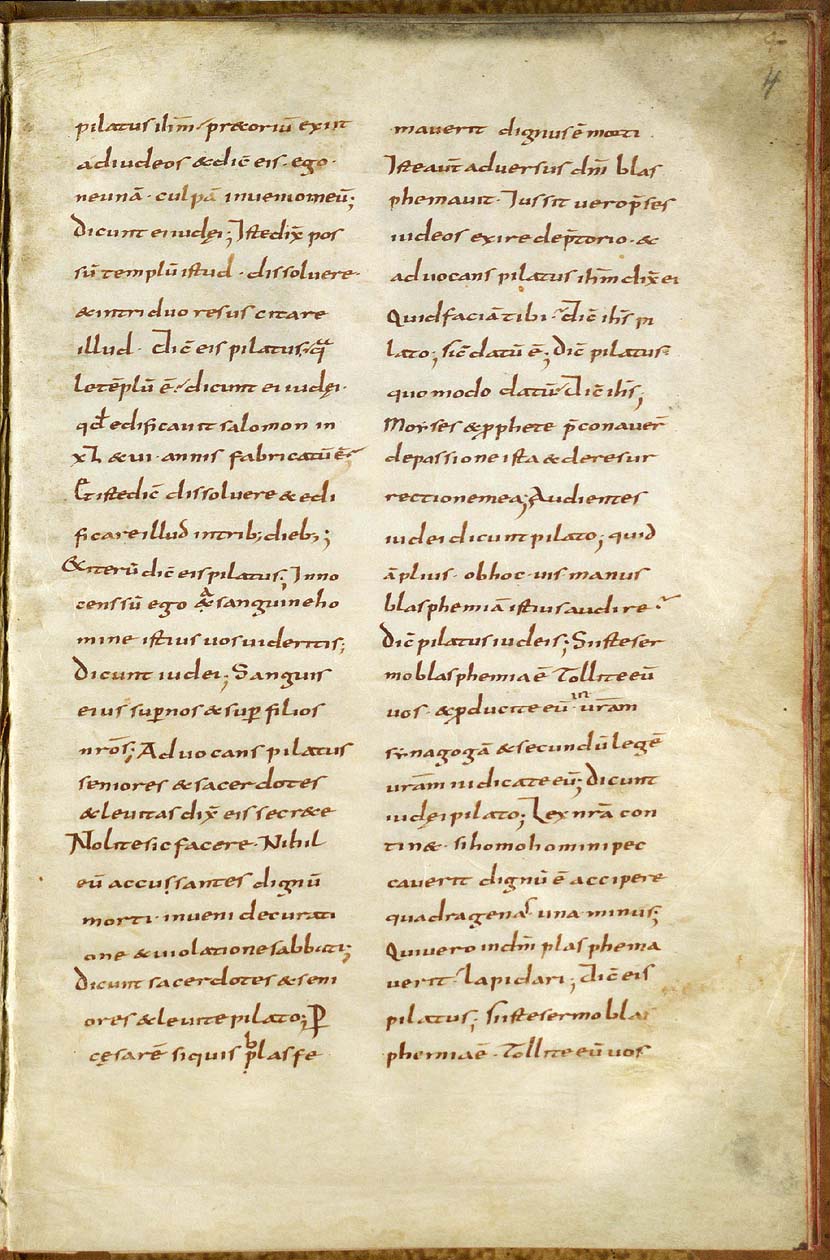 4
pilatus ihm̄ pretoriū exiit
ad iudeos & dic̄ eis · ego ·
ne unā · culpā inuenio in eū;
Dicunt ei iudęi; Iste dix̄ pos
sū templū istud · dissoluere ·
& in triduo resuscitare
illud · Dic̄ eis pilatus; qa
le tēplū ē? dicunt ei iudęi ·
qd̄ edificauit salomon in
XL & VI · annis fabricatū ē;
Et iste dic̄ dissoluere & edi
ficare illud in trib; dieb;;
& iterū dic̄ eis pilatus; Inno
cens sū ego a sanguine ho
mine istius uos uideritis;
Dicunt iudei; Sanguis
eius suꝑ nos & suꝑ filios
nr̄os; Aduocans pilatus
seniores & sacerdotes
& leuitas dix̄ eis secr&e
Nolite sic facere · Nihil
eū accussantes dignū
morti · inueni de curati
one & uiolatione sabbati;
Dicunt sacerdotes & seni
ores & leuite pilato; P̄
cęsarē si quis blasfe
mauerit dignus ē morti
Iste aut̄ aduersus dm̄ blas
phemauit · Iussit uero p̄ses
iudeos exire de p̄torio · &
aduocans pilatus ihm̄ dix̄ ei
Quid faciā tibi · dic̄ ihs̄ pi
lato; sic̄ datū ē; Dic̄ pilatus
quomodo datū · Dic̄ ihs̄;
Moyses & ꝓphete p̄conauer̄
de passione ista & de resur
rectione mea; Audientes
iudei dicunt pilato; quid
āplius · ob hoc · uis manus
blasphemiā istius audire?
Dic̄ pilatus iudeis; Si iste ser
mo blasphemia ē Tollite eū
uos · & ꝓducite eū · in ur̄am
synagogā & secundū legē
ur̄am iudicate eū; Dicunt
iudęi pilato; Lex nr̄a con
tin& · si homo homini pec
cauerit dignū ē accipere
quadragenas una minus;
Qui uero in dm̄ plasphema
uerit · lapidari; dic̄ eis
pilatus; si iste sermo blas
phemia ē · Tollite eū uos